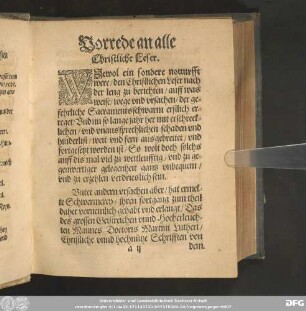 Vorrede an alle
Christliche Leser.
Wiewol ein sondere notturfft
were / den Christlichen Leser nach
der leng zu berichten / auff was
weise / wege vnd vrsachen / der ge-
fehrliche Sacramentschwarm erstlich er-
reget / Vnd in so lange jahr her mit erschreck-
lichen / vnd vnaussprechlichen schaden vnd
hindernis / weit vnd fern ausgebreitet / vnd
fortgesetzt worden ist / So wolt doch solchs
auff dis mal viel zu weitleufftig / vnd zu ge-
genwertiger gelegenheit gantz vnbequem /
vnd zu erzehlen verdrieslich sein.
Vnter andern vrsachen aber / hat ermel-
te Schwermerey / ihren fortgang zum theil
daher vornemlich gehabt vnd erlangt / Das
des grossen Geistreichen vnnd Hocherleuch-
ten Mannes Doctoris Martini Lutheri /
Christliche vnnd hochnütze Schrifften von
a ij
dem